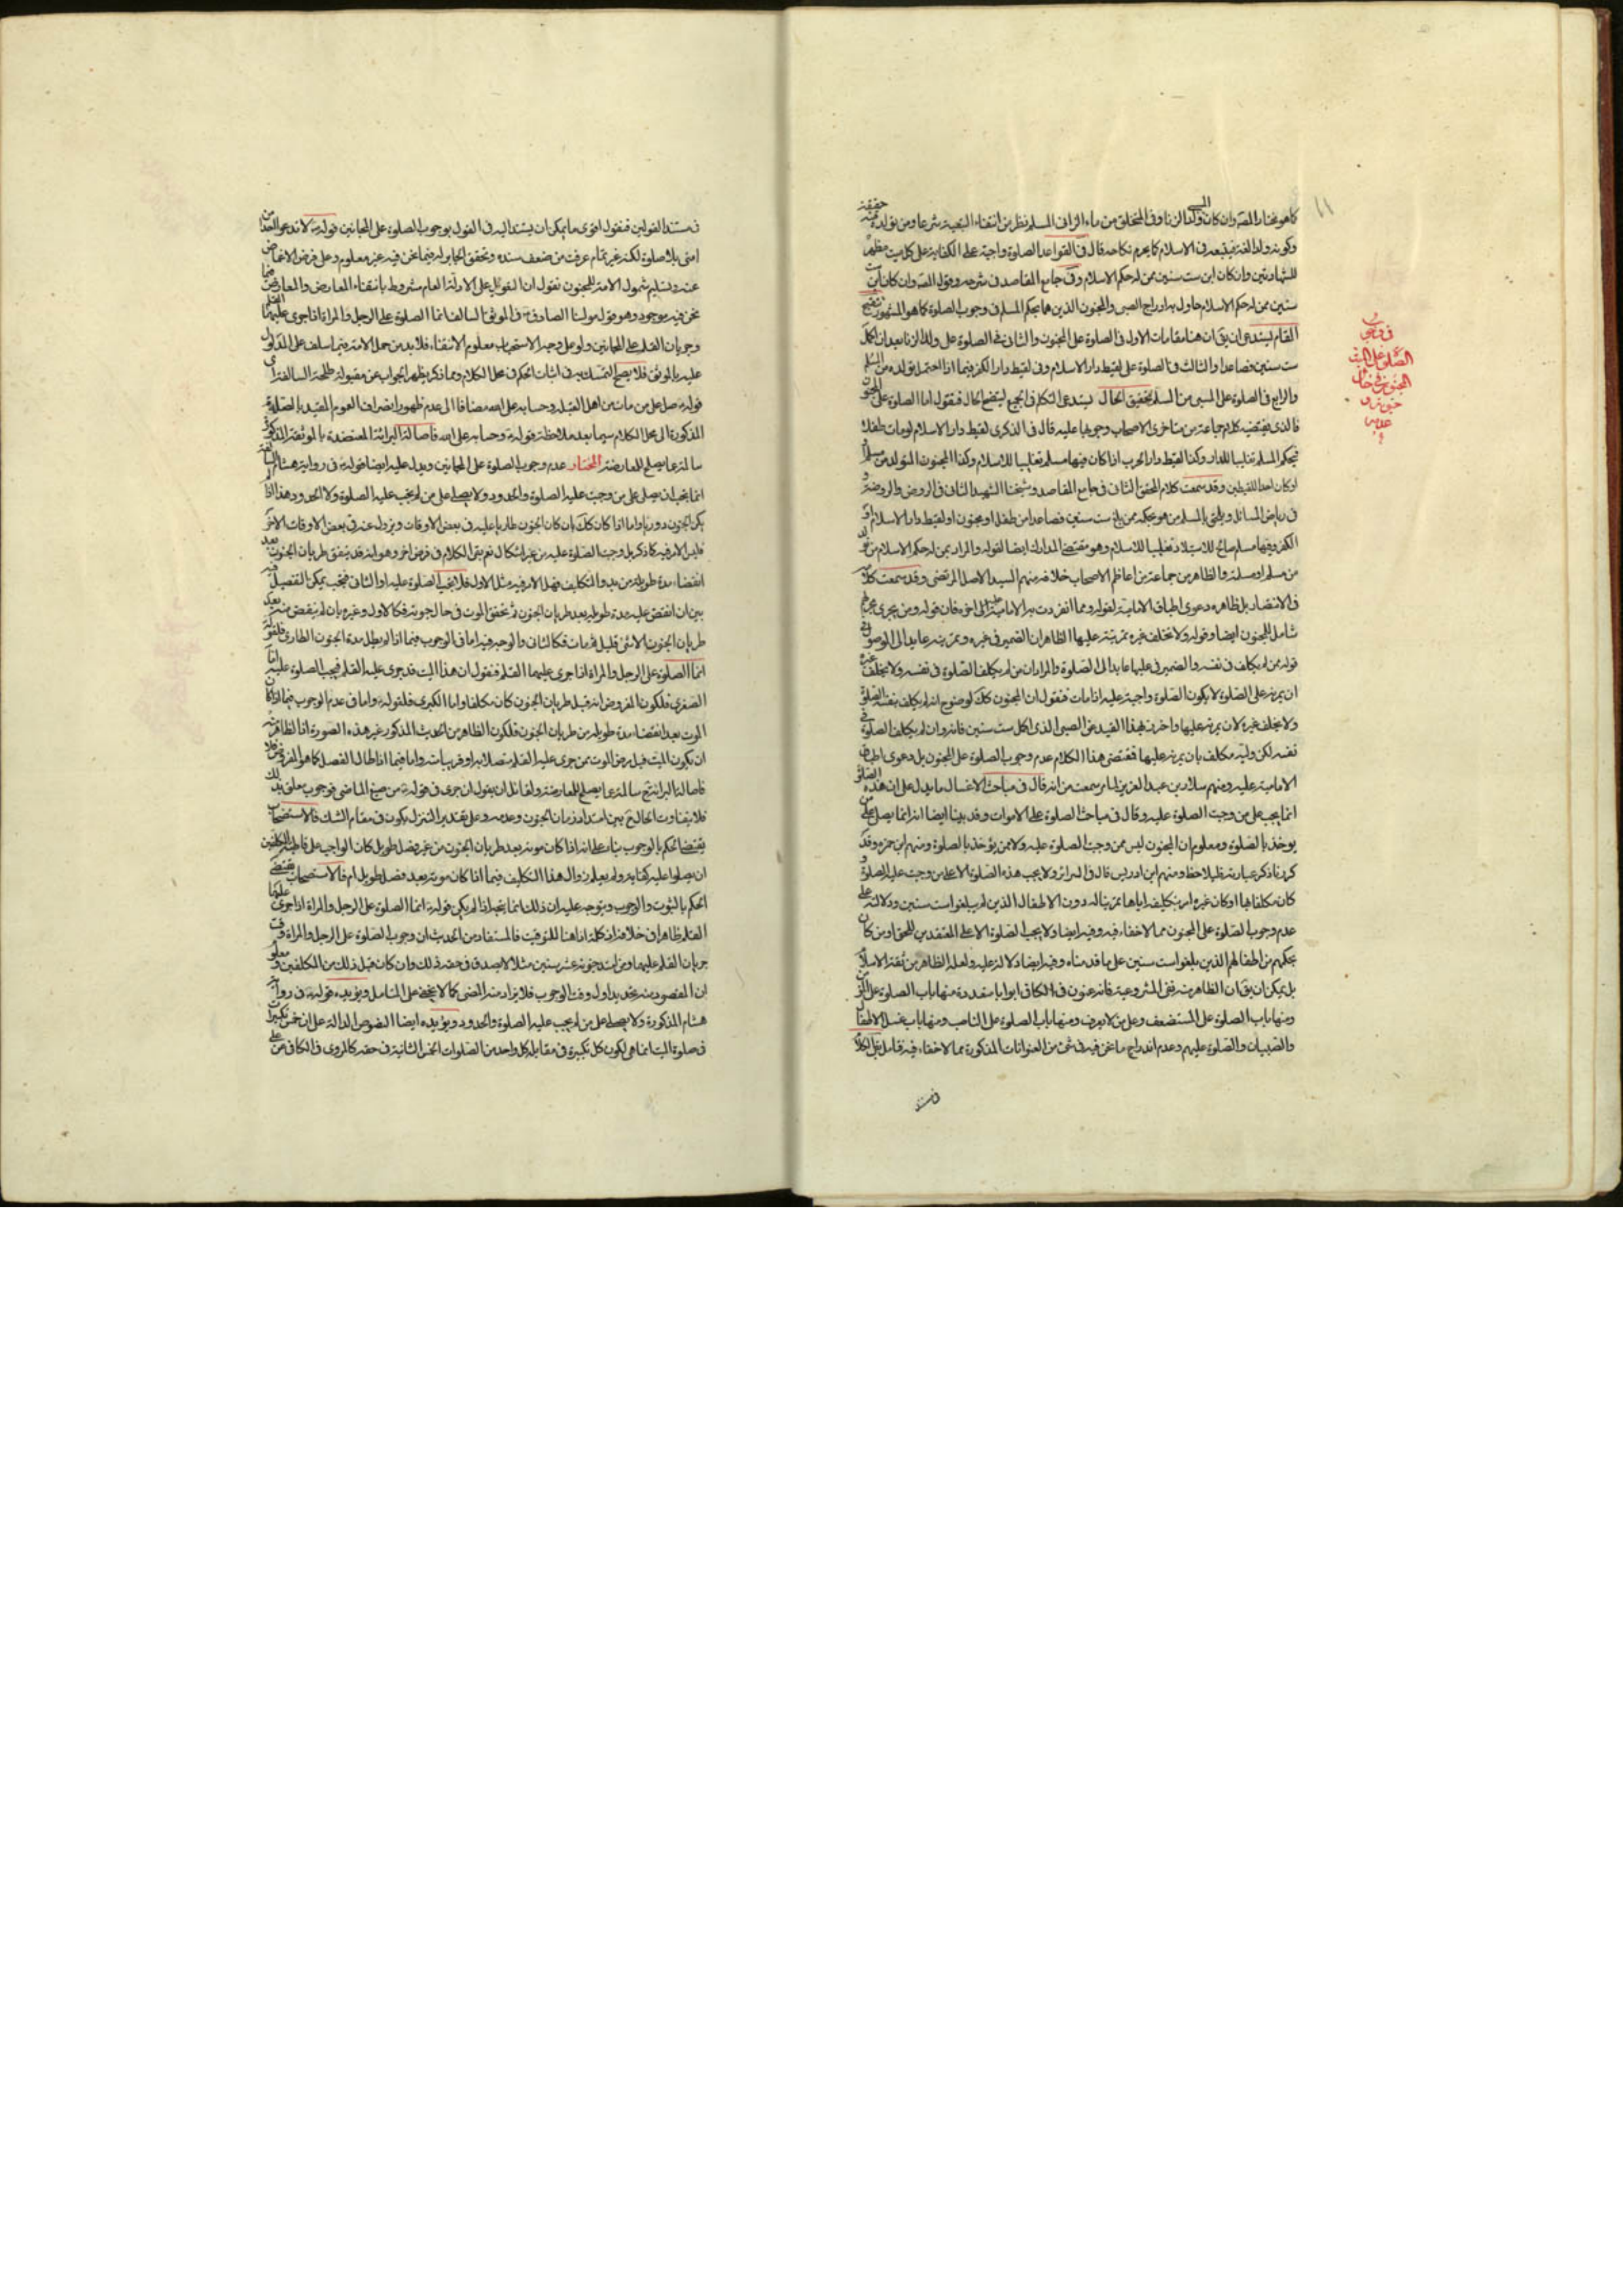 كما هو مختار المصـ وان كان ولد الزنا وفى المتخلق من ماء الزانى المسلم نظر من انتفاء التبعية شرعا ومن تولده منه حقيقة
وكونه ولدا لغة فيتبعه فى الاسلام كما يحرم نكاحه قال فى القواعد الصلوة واجبة على الكفاية على كل ميت مظهر
للشهادتين وان كان ابن ست سنين ممن له حكم الاسلام وفى جامع المقاصد فى شرحه وقوله المصـ وان كان ابن ست
سنين ممن له حكم الاسلام حاول به ادراج الصبى والمجنون الذين هما بحكم المسلم فى وجوب الصلوة كما هو المشهور تنقيح
المقام يستدعى ان يق ان هنا مقامات الاول فى الصلوة على المجنون والثانى فى الصلوة على ولد الزنا بعد ان اكمل
ست سنين فصاعدا والثالث فى الصلوة على لقيط دار الاسلام وفى لقيط دار الكفر فيما اذا احتمل تولده من المسلم
والرابع فى الصلوة على المسبى من المسلم تحقيق الحال يستدعى التكلم فى الجميع ليتضح الحال فنقول اما الصلوة على المجنون
فالذى يقتضيه كلام جماعة من متاخرى الاصحاب وجوبها عليه قال فى الذكرى لقيط دار الاسلام لو مات طفلا
فبحكم المسلم تغليبا للدار وكذا لقيط دار الحرب اذا كان فيها مسلم تغليبا للاسلام وكذا المجنون المتولد من مسلم
او كان احد اللقيطين وقد سمعت كلام المحقق الثانى فى جامع المقاصد وشيخنا الشهيد الثانى فى الروض والروضة و
فى رياض المسائل ويلحق بالمسلم من هو بحكمه ممن بلغ ست سنين فصاعدا من طفل او مجنون او لقيط دار الاسلام او
الكفر وفيها مسلم صالح للاستيلاد تغليبا للاسلام وهو مقتضى المدارك ايضا لقوله والمراد بمن له حكم الاسلام من تولد
من مسلم او مسلمة والظاهر من جماعة من اعاظم الاصحاب خلافه منهم السيد الاجل المرتضى وقد سمعت كلامه
فى الانتصار بل ظاهره دعوى اطباق الامامية لقوله ومما انفردت به الامامية الى اخره فان قوله ومن يجرى مجراه
شامل للمجنون ايضا وقوله ولا تخلف غيره تمرينه عليها الظاهر ان الضمير فى غيره وتمرينه عايد الى الموصول فى
قوله ممن لم يكلف فى نفسه والضمير فى عليها عايد الى الصلوة والمراد ان من لم يكلف الصلوة فى نفسه ولا يخلف غيره
ان يمرنه على الصلوة لا يكون الصلوة واجبة عليه اذا مات فنقول ان المجنون كك لوضوح انه لم يكلف بنفسه الصلوة
نفسه لكن وليه مكلف بان يمرنه عليها فمقتضى هذا الكلام عدم وجوب الصلوة على المجنون بل دعوى اطباق
الامامية عليه ومنهم سلار بن عبد العزيز لما مر سمعت من انه قال فى مباحث الاغسال ما يدل على ان هذه الصلوة
انما يجب على من وجبت الصلوة عليه وقال فى مباحث الصلوة على الاموات وقد بينا ايضا انه انما يصلى على من
يؤخذ بالصلوة ومعلوم ان المجنون ليس ممن وجبت الصلوة عليه ولا ممن يؤخذ بالصلوة ومنهم ابن حمزه وقد
عدم وجوب الصلوة على المجنون مما لا خفاء فيه وفيه ايضا ولا يجب الصلوة الا على المعتقدين للحق او من كان
بحكمهم من اطفالهم الذين بلغوا ست سنين على ما قدمناه وفيه ايضا دلالة عليه ولعله الظاهر من ثقة الاسلام
بل يمكن ان يق ان الظاهر منه نفى المشروعية فانه عنون فى الكافى ابوابا متعددة منها باب الصلوة على المؤمن
ومنها باب الصلوة على المستضعف وعلى من لا يعرف ومنها باب الصلوة على الناصب ومنها باب غسل الاطفال
والصبيان والصلوة عليهم وعدم اندراج ما نحن فيه فى شئ من العنوانات المذكورة مما لا خفاء فيه فتامل بقى الكلام
١١
فى وجوب
الصلوة على الميت
المجنون فى حال
جنونه و
عدمه
فى مستند القولين فنقول اقوى ما يمكن ان يستند اليه فى القول بوجوب الصلوة على المجانين قوله لا تدعوا احدا من
امتى بلا صلوة لكنه غير تمام عرفت من ضعف سنده وتحقق الجابر له فيما نحن فيه غير معلوم وعلى فرض الاغماض
عنه وتسليم شمول الامة للمجنون نقول ان التعويل على الادلة العام مشروط بانتفاء المعارض والمعارض فيما
نحن فيه موجود وهو قول مولينا الصادق فى الموثق السالف انما الصلوة على الرجل والمراة اذا جرى عليهما القلم
وجريان القلم على المجانين ولو على وجه الاستحباب معلوم الانتفاء فلا بد من حمل الامة فيما سلف على المدلول
عليه بالموثق فلا يصح التمسك به فى اثبات الحكم فى محل الكلام ومما ذكر يظهر الجواب عن مقبولة طلحة السالفة اى
قوله صل على من مات من اهل القبلة وحسابه على الله مضافا الى عدم ظهور انصراف العموم المقيد بالصلوة
المذكورة الى محل الكلام سيما بعد ملاحظة قوله وحسابه على الله فاصالة البرائة المعتضدة بالموثقة المذكورة
سالمة عما يصلح للمعارضة المختار عدم وجوب الصلوة على المجانين ويدل عليه ايضا قوله فى رواية هشام السالفة
انما يجب ان يصلى على من وجبت عليه الصلوة والحدود ولا يصلى على من لم يجب عليه الصلوة ولا الحدود هذا اذا لم
يكن الجنون دوريا واما اذا كان كك بان كان الجنون طاريا عليه فى بعض الاوقات ويزول عنه فى بعض الاوقات الاخر
فليس الامر فيه كما ذكر بل وجبت الصلوة عليه من غير اشكال نعم بقى الكلام فى فرض اخر وهو انه قد يتفق طريان الجنون بعد
انقضاء مدة طويلة من بدو التكليف فهل الامر فيه مثل الاول فلا يجب الصلوة عليه او الثانى فيجب يمكن التفصيل فيه
بين ان انقضى عليه مدة طويلة بعد طريان الجنون ثم تحقق الموت فى حال جنونه فكالاول وغيره بان لم ينقض منه بعد
طريان الجنون الا شئ قليل ثم مات فكالثانى والوجه فيه اما فى الوجوب فيما اذا لم يطل مدة الجنون الطارى فلقوله
انما الصلوة على الرجل والمراة اذا جرى عليهما القلم فنقول ان هذا الميت قد جرى عليه القلم فيجب الصلوة عليه اما
الصغرى فلكون المفروض انه قبل طريان الجنون كان مكلفا واما الكبرى فلقوله واما فى عدم الوجوب فيما اذا كان
الموت بعد انقضاء مدة طويلة من طريان الجنون فلكون الظاهر من الحديث المذكور غير هذه الصورة اذ الظاهر منه
فاصالة البرائة سالمة عما يصلح للمعارضة ولقائل ان يقول ان جرى فى قوله من صيغ الماضى فوجوب معلق بذلك
فلا يتفاوت الحال ح بين امتداد زمان الجنون وعدمه وعلى تقدير التنزل يكون فى مقام الشك فالاستصحاب
يقتضى الحكم بالوجوب بناء على انه اذا كان موته بعد طريان الجنون من غير فصل طويل كان الواجب على قاطبة المكلفين
ان يصلوا عليه كفاية ولم يعلم زوال هذا التكليف فيما اذا كان موته بعد فصل طويل ام فالاستصحاب يقتضى
الحكم بالثبوت والوجوب ويتوجه عليه ان ذلك انما يتجه اذا لم يكن قوله انما الصلوة على الرجل والمراة اذا جرى عليهما
القلم ظاهرا فى خلافه اذ كلمة اذا هنا للتوقيت فالمستفاد من الحديث ان وجوب الصلوة على الرجل والمراة وقت
جريان القلم عليهما ومن امتد جنونه عشر سنين مثلا لا يصدق فى حقه ذلك وان كان قبل ذلك من المكلفين ومعلوم
ان المقصود منه تحديد اول وقت الوجوب فلا يراد منه المضى كما لا يخفى على المتامل ويؤيده قوله فى رواية
هشام المذكورة ولا يصلى على من لم يجب عليه الصلوة والحدود ويؤيده ايضا النصوص الدالة على ان خمس تكبيرات
فى صلوة الميت انما هى لكون كل تكبيرة فى مقابلة كل واحد من الصلوات الخمس الثابتة فى حقه كالمروى فى الكافى عن